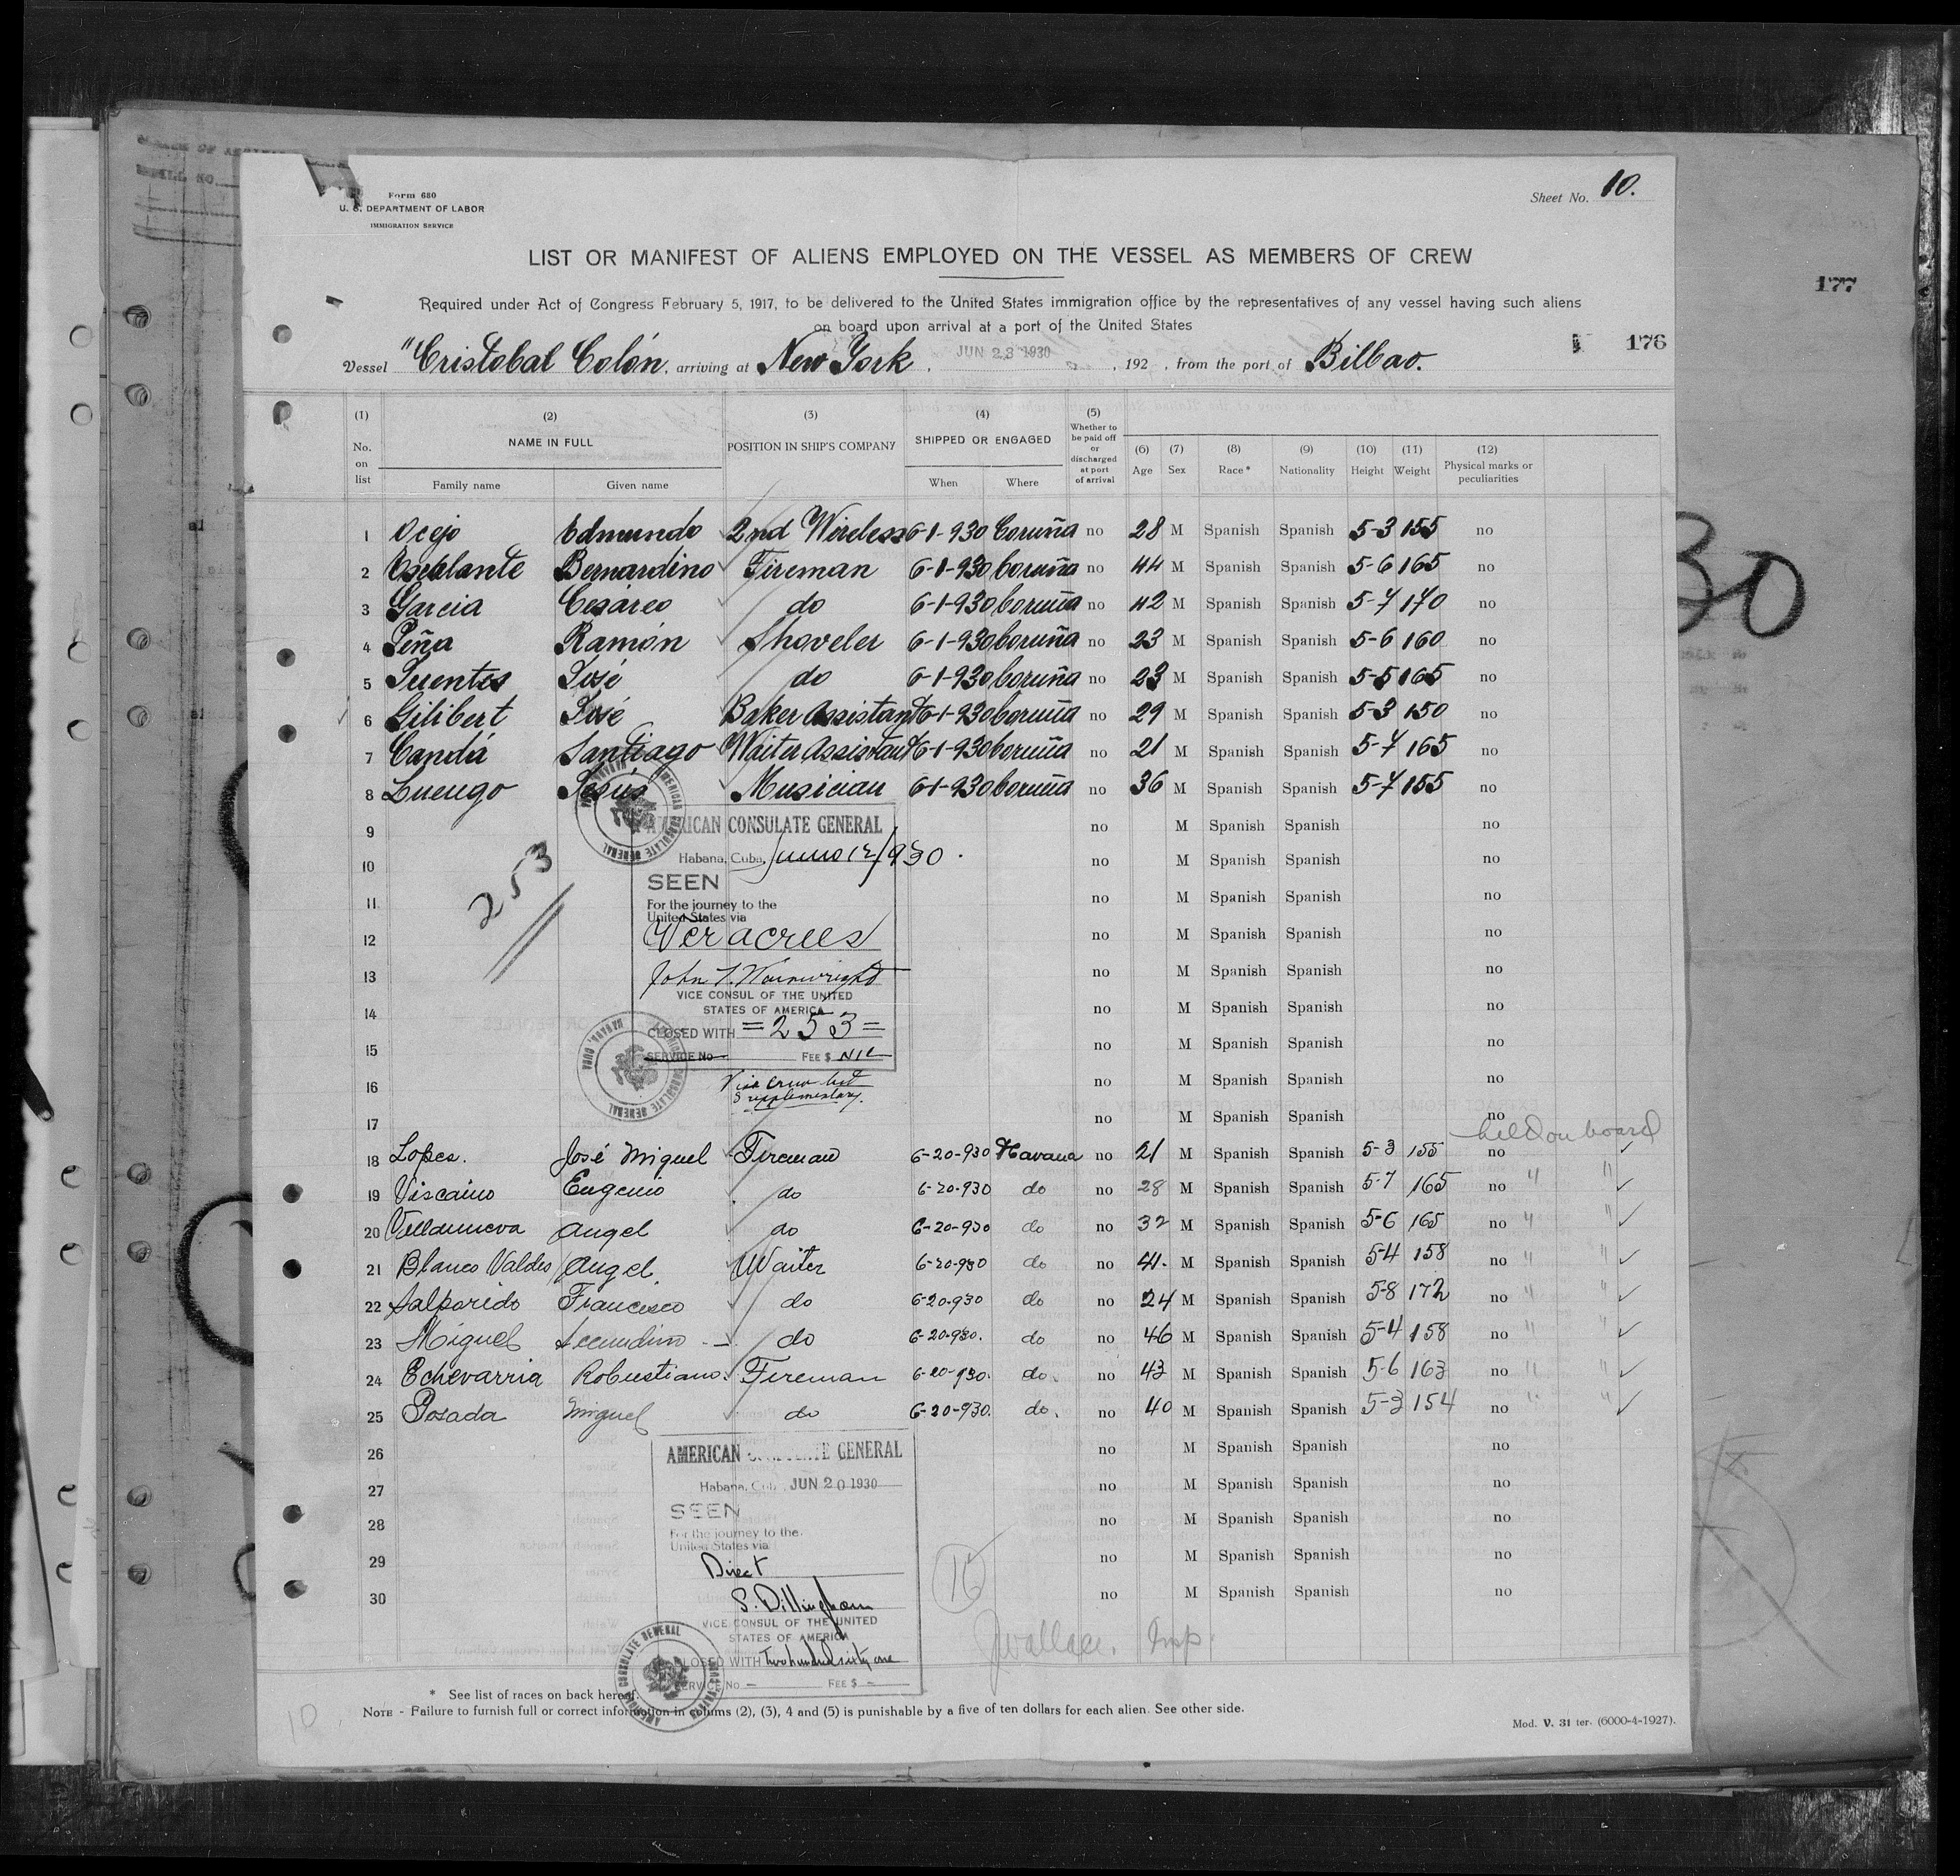 177
Form 680
U. S. DEPARTMENT OF LABOR
IMMIGRATION SERVICE
Sheet No. 10.
LIST OR MANIFEST OF ALIENS EMPLOYED ON THE VESSEL AS MEMBERS OF CREW
Required under Act of Congress February 5, 1917, to be delivered to the United States immigration office by the representatives of any vessel having such aliens
on board upon arrival at a port of the United States
176
Vessel "Cristobal Colón, arriving at New York, JUN 23 1930, 192 , from the port of Bilbao.
(1) No. on list (2) NAME IN FULL Family name Given name (3) POSITION IN SHIP'S COMPANY (4) SHIPPED OR ENGAGED When Where (5) Whether to be paid off or discharged at port of arrival (6) Age (7) Sex (8) Race* (9) Nationality (10) Height (11) Weight (12) Physical marks or peculiarities
1 Ocejo Edmundo 2nd Wireless 6-1-930 Coruña no 28 M Spanish Spanish 5-3 155 no
2 Escalante Bernardino Fireman 6-1-930 Coruña no 44 M Spanish Spanish 5-6 165 no
3 Garcia Cesáreo do 6-1-930 Coruña no 42 M Spanish Spanish 5-7 170 no
4 Peña Ramón Shoveler 6-1-930 Coruña no 23 M Spanish Spanish 5-6 160 no
5 Fuentes José do 6-1-930 Coruña no 23 M Spanish Spanish 5-5 165 no
6 Gilibert José Baker Assistant 6-1-930 Coruña no 29 M Spanish Spanish 5-3 150 no
7 Candá Santiago Waiter Assistant 6-1-930 Coruña no 21 M Spanish Spanish 5-7 165 no
8 Luengo Jesús Musician 6-1-930 Coruña no 36 M Spanish Spanish 5-7 155 no
9 no M Spanish Spanish no
10 no M Spanish Spanish no
11 no M Spanish Spanish no
12 no M Spanish Spanish no
13 no M Spanish Spanish no
14 no M Spanish Spanish no
15 no M Spanish Spanish no
16 no M Spanish Spanish no
17 no M Spanish Spanish no
253
AMERICAN CONSULATE GENERAL
Habana, Cuba, 12/930.
SEEN
For the journey to the
United States via
Veracruz
John T. Wainwright
VICE CONSUL OF THE UNITED
STATES OF AMERICA
CLOSED WITH =253=
SERVICE No FEE $ NIL
Visa crew list
Supplementary.
held on board
18 Lopes. José Miguel Fireman 6-20-930 Havana no 21 M Spanish Spanish 5-3 155 no
19 Viscaino Eugenio do 6-20-930 do no 28 M Spanish Spanish 5-7 165 no " "
20 Villanueva Angel do 6-20-930 do no 32 M Spanish Spanish 5-6 165 no " "
21 Blanco Valdes Angel. Waiter 6-20-930 do no 41. M Spanish Spanish 5-4 158 no " "
22 Salporido Francisco do 6-20-930 do no 24 M Spanish Spanish 5-8 172 no " "
23 Miguel Secundino do 6-20-930. do no 46 M Spanish Spanish 5-4 158 no " "
24 Echevarria Robustiano. Fireman 6-20-930. do. no 43 M Spanish Spanish 5-6 163 no " "
25 Posada Miguel do 6-20-930. do. no 40 M Spanish Spanish 5-3 154 no " "
26 no M Spanish Spanish no
27 no M Spanish Spanish no
28 no M Spanish Spanish no
29 no M Spanish Spanish no
30 no M Spanish Spanish no
AMERICAN CONSULATE GENERAL
Habana, Cuba, JUN 20 1930
SEEN
For the journey to the
United States via
Direct
S. Dillingham
VICE CONSUL OF THE UNITED
STATES OF AMERICA
CLOSED WITH two hundred sixty one
SERVICE No. — FEE $ —
AMERICAN CONSULATE GENERAL
16
J Wallace. Insp.
* See list of races on back hereof.
NOTE - Failure to furnish full or correct information in colums (2), (3), 4 and (5) is punishable by a five of ten dollars for each alien. See other side.
10
Mod. V. 31 ter. (6000-4-1927).
30